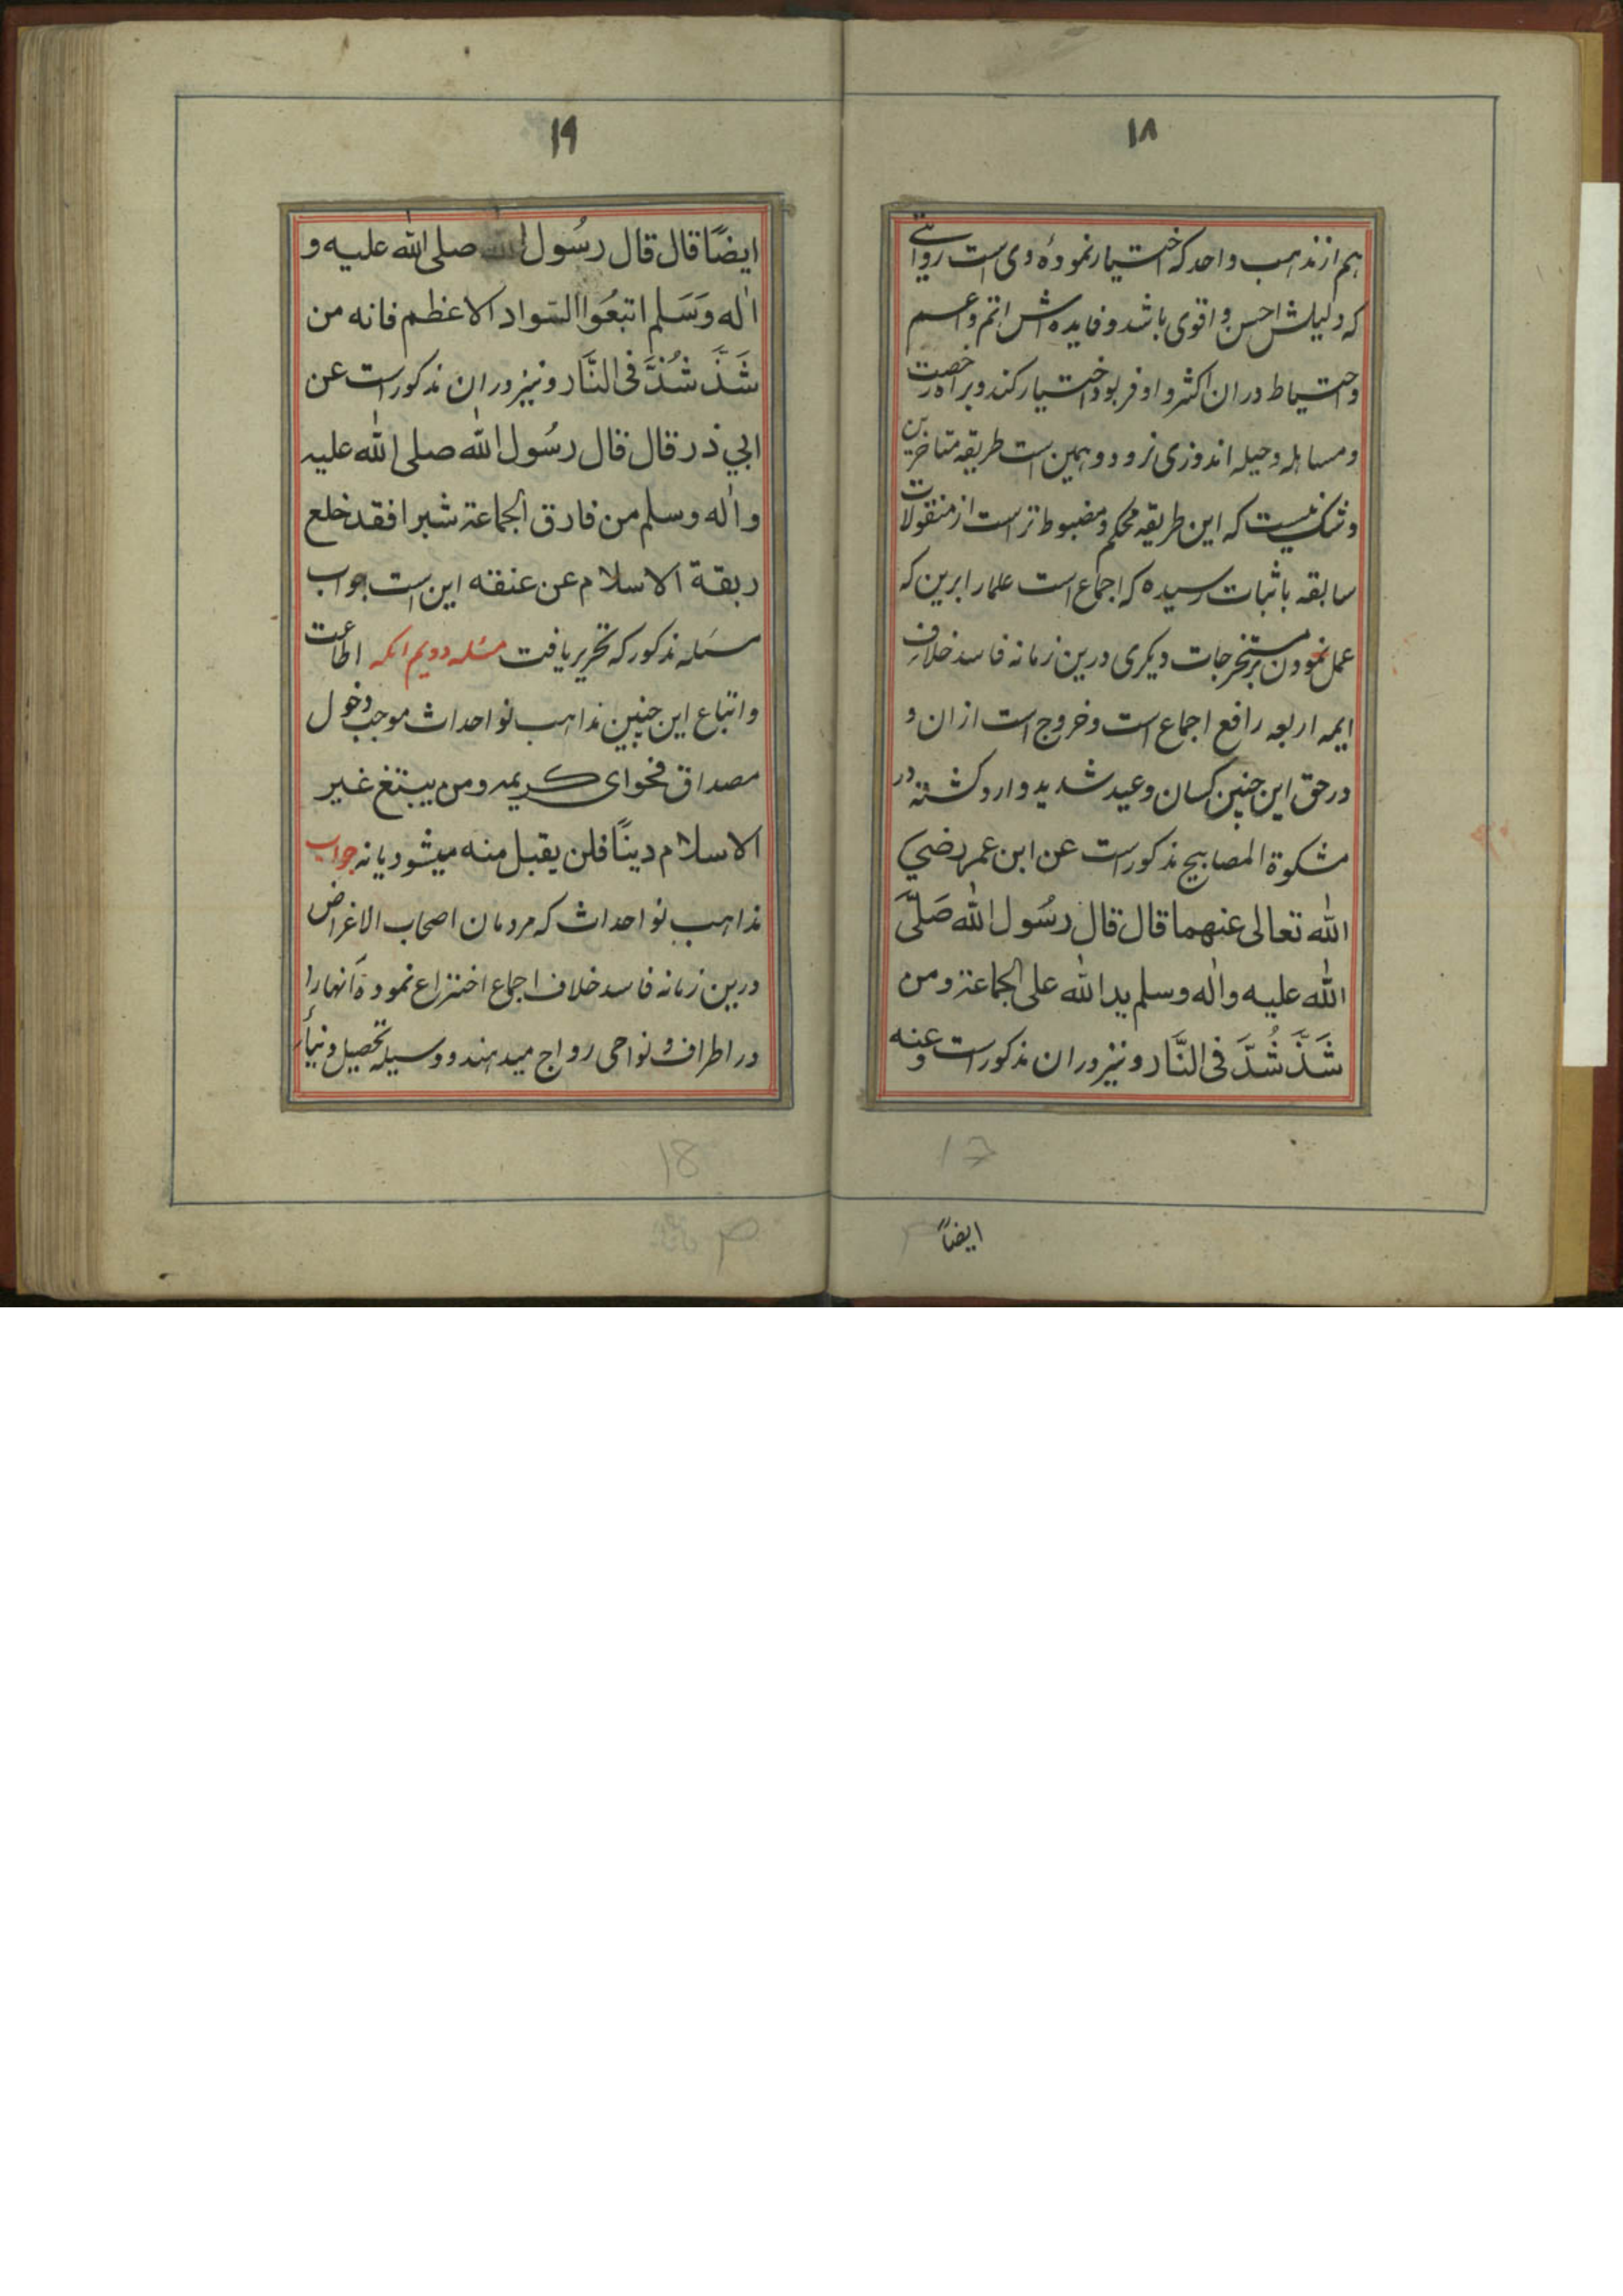 ١٨
هم از مذهب واحد که اختیار نمودهٔ وی است روایتی
که دلیلش احسن و اقوی باشد و فایده اش اتم و اعم
و احتیاط دران اکثر و اوفر بود اختیار کند و براه رخصت
و مساهله و حیله اندوزی نرود و همین است طریقه متاخرین
و شک نیست که این طریقه محکم و مضبوط تر است از منقولات
سابقه باثبات رسیده که اجماع است علما را برین که
عمل نمودن بر مستخرجات دیکری درین زمانه فاسد خلاف
ایمه اربعه رافع اجماع است و خروج است ازان و
در حق این چنین کسان وعید شدید وارد کشته در
مشکوة المصابیح مذکور است عن ابن عمر رضي
الله تعالی عنهما قال قال رسُول الله صَلّیَ
الله علیه واله وسلم ید الله علی الجماعة ومن
شَذَّ شُذَّ فی النَّار و نیز دران مذکور است و عنه
17
ایضاً
١٩
ایضًا قال قال رسُول الله صلی الله علیه و
اله وَسَلم اتبعُوا السّواد الاعظم فانه من
شَذَّ شُذَّ فی النَّار و نیز دران مذکور است عن
ابي ذر قال قال رسُول الله صلی الله علیه
واله وسلم من فارق الجماعة شبرا فقد خلع
ربقة الاسلام عن عنقه این است جواب
مسئله مذکور که تحریر یافت مسئله دویم انکه اطاعت
و اتباع این چنین مذاهب نو احداث موجب دخول
مصداق فحوای کریمه ومن یبتغ غیر
الاسلام دینًا فلن یقبل منه میشود یا نه جواب
مذاهب نو احداث که مردمان اصحاب الاغراض
درین زمانه فاسد خلاف اجماع اختراع نموده آنها را
در اطراف و نواحی رواج میدهند و وسیله تحصیل دنیا
18